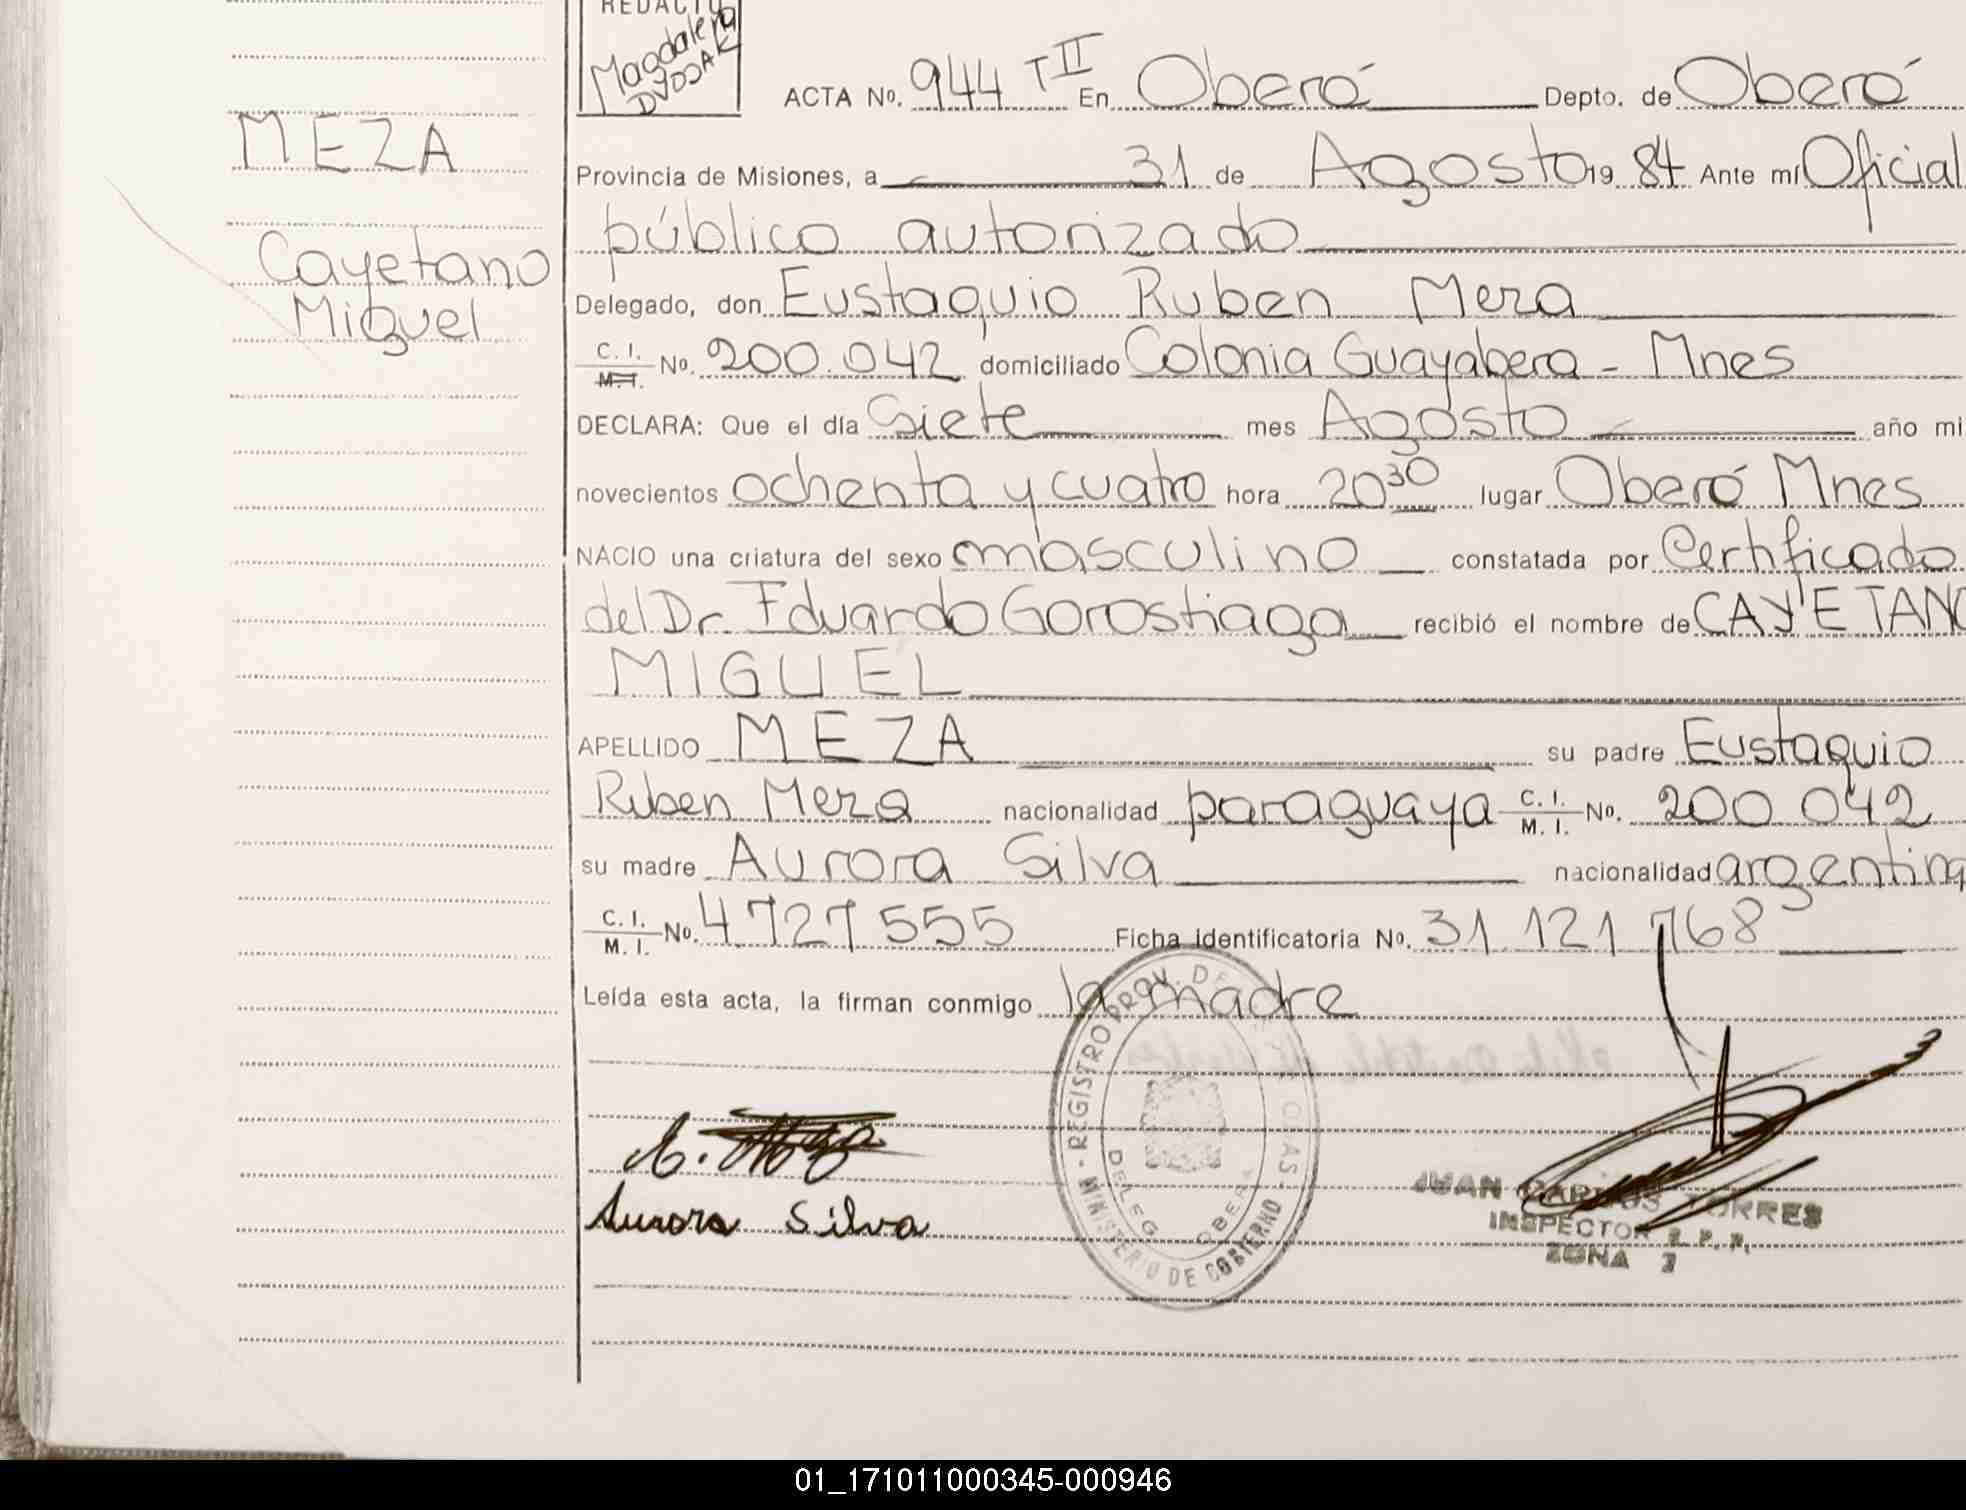 REDACTO
Magdalena
DYDJAK
ACTA No. 944 T II En Oberá Depto. de Oberá
MEZA
Provincia de Misiones, a 31 de Agosto 19 84 Ante mí Oficial
público autorizado
Cayetano
Miguel
Delegado, don Eustaquio Ruben Meza
C. I. No. 200.042 domiciliado Colonia Guayabera - Mnes
M. I.
DECLARA: Que el día Siete mes Agosto año mi
novecientos ochenta y cuatro hora 20 30 lugar Oberá Mnes
NACIO una criatura del sexo masculino constatada por Certificado
del Dr. Eduardo Gorostiaga recibió el nombre de CAYETANO
MIGUEL
APELLIDO MEZA su padre Eustaquio
Ruben Meza nacionalidad paraguaya C. I. M. I. No. 200.042
su madre Aurora Silva nacionalidad argentina
C. I. M. I. No. 4 727 555 Ficha identificatoria No. 31 121 768
Leída esta acta, la firman conmigo la madre
REGISTRO PROV. DE
MINISTERIO DE GOBIERNO
DELEG OBERA
Aurora Silva
JUAN CARLOS TORRES
INSPECTOR R. P. P.
ZONA
01_171011000345-000946